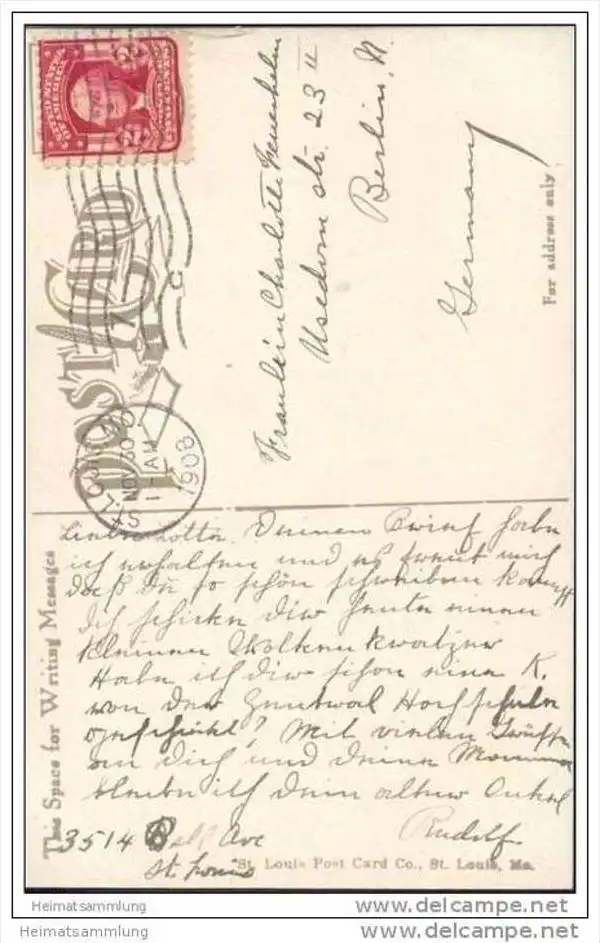 UNITED STATES
OF AMERICA
POST CARD
ST. LOUIS, MO.
NOV 30
1-AM
1908
Fräulein Charlotte
Usedom str. 23 II
Berlin, N.
Germany
For address only
This Space for Writing Messages
Liebe Lotte. Deinen Brief habe
ich erhalten und es freut mich
daß Du so schön schreiben kannst
Ich schicke Dir heute einen
kleinen Wolkenkratzer
Habe ich Dir schon eine K.
von der Zentral Hochschule
geschickt? Mit vielen Grüßen
an Dich und Deine Mamma
bleibe ich Dein alter Onkel
Rudolf
3514 Bell Ave
St. Louis
St. Louis Post Card Co., St. Louis, Mo.
Heimatsammlung
Heimatsammlung
www.delcampe.net
www.delcampe.net